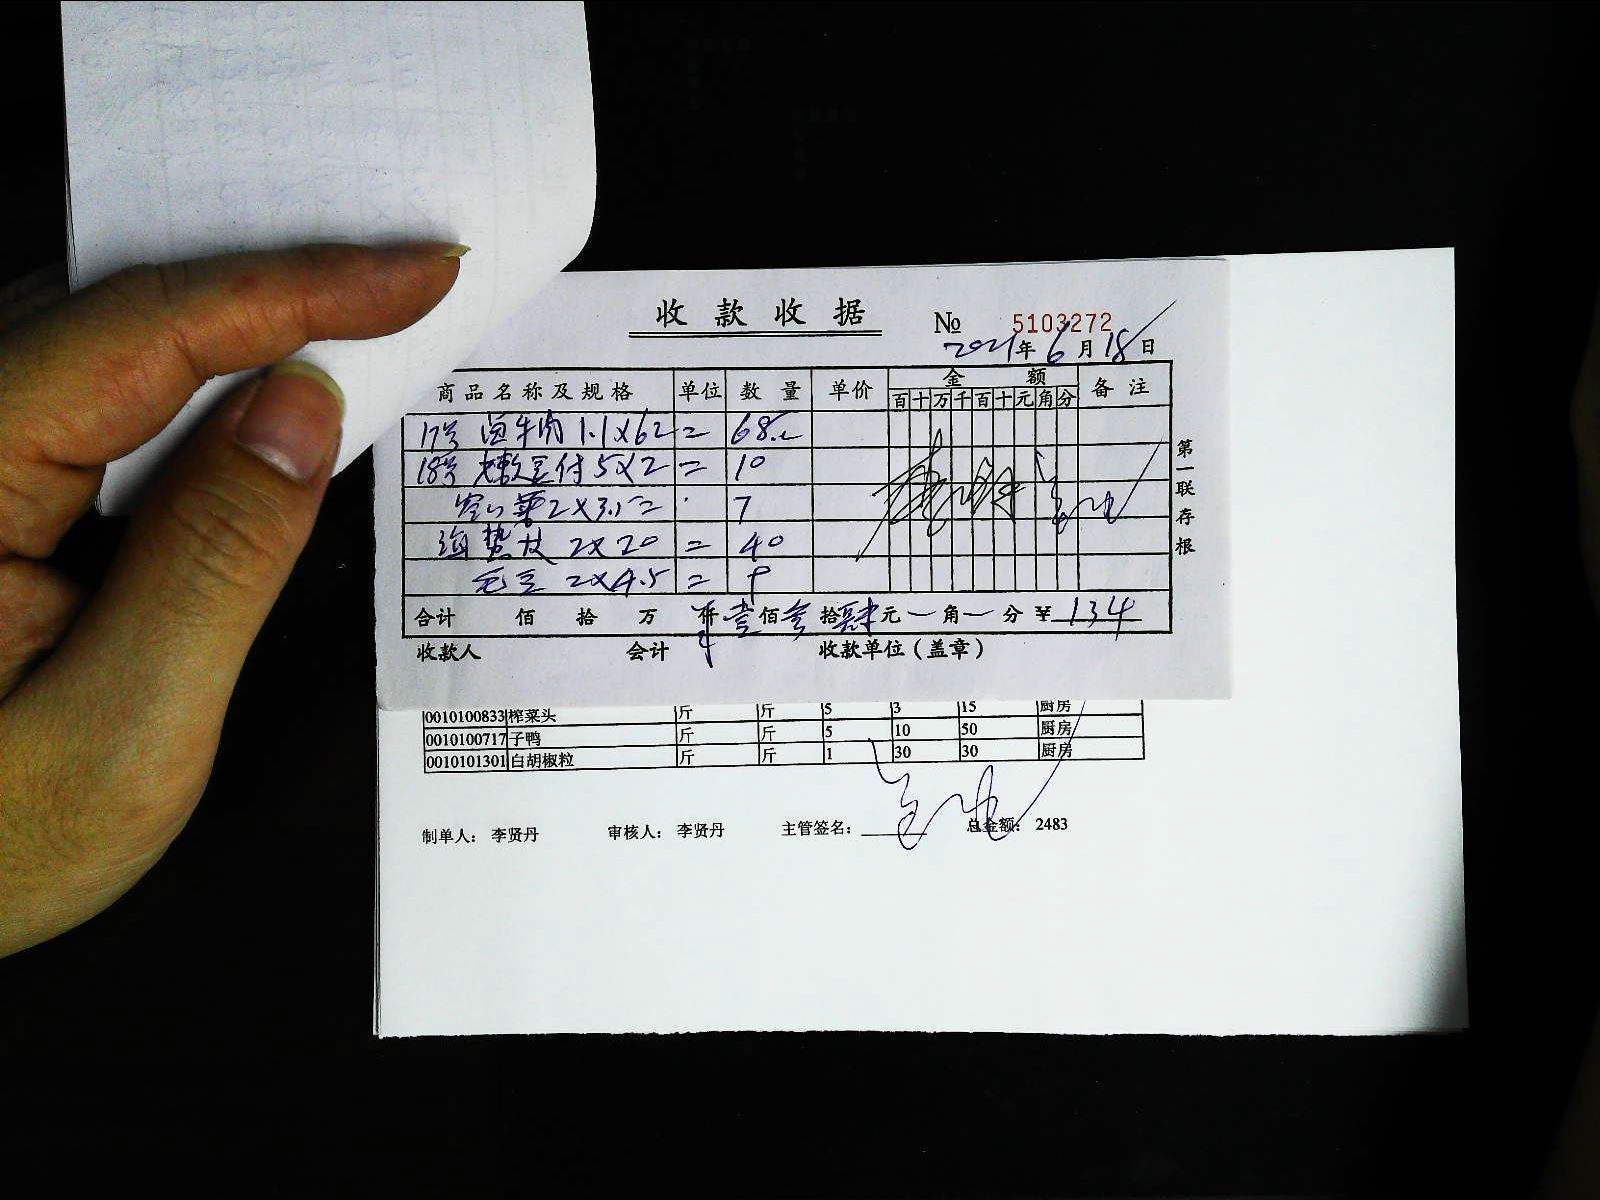 收款收据
№ 5103272
2021年6月18日
商品名称及规格 单位 数量 单价 金额 备注
百十万千百十元角分
17号 卤牛肉 1.1×62= 68.2
18号 老豆付 5×2= 10
2×3.5= 7
海蜇皮 2×20 = 40
毛豆 2×4.5 = 9
合计 佰 拾 万 仟壹佰叁拾肆元 角 分 ¥ 134
收款人 会计 收款单位(盖章)
第一联存根
0010100833 榨菜头 斤 斤 5 3 15 厨房
0010100717 子鸭 斤 斤 5 10 50 厨房
0010101301 白胡椒粒 斤 斤 1 30 30 厨房
制单人: 李贤丹 审核人: 李贤丹 主管签名: 总金额: 2483